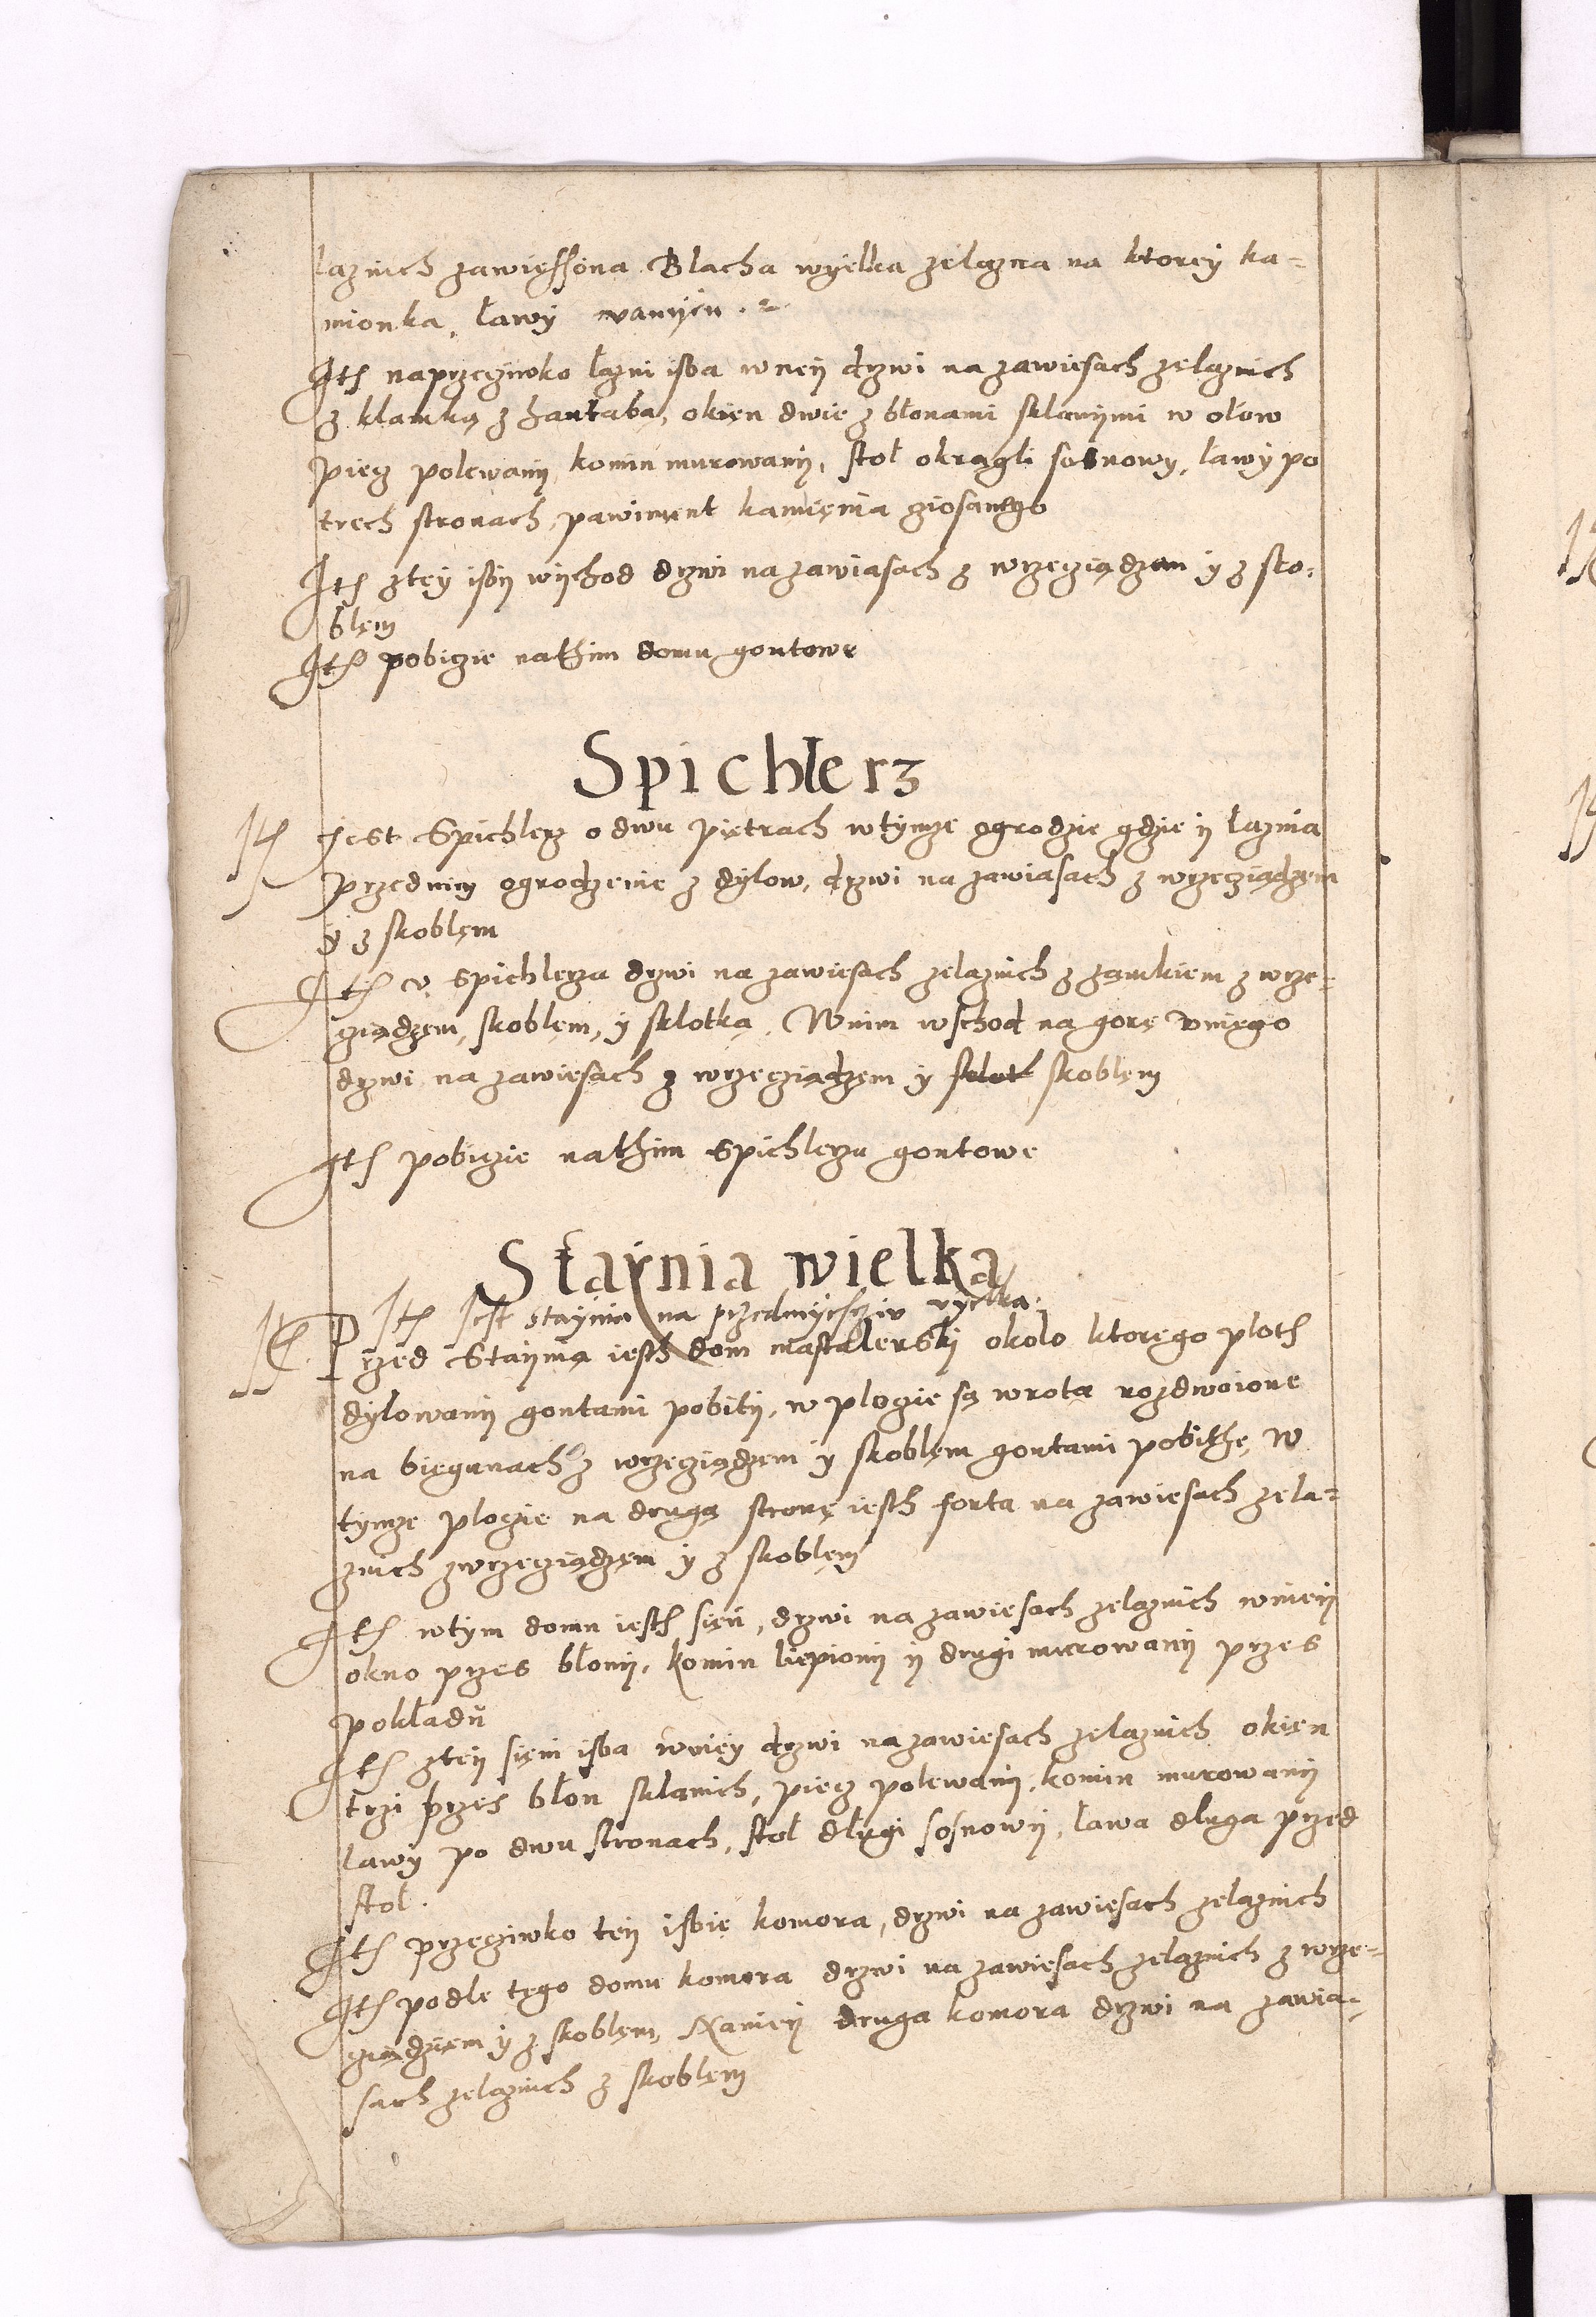 laznich zawięssona Blacha wyelka zelązna na ktorey ka=
mionka, ławy
Ith naprzeczÿwko łazni isba w neÿ drzwi na zawiesach zelaznich
z klamką z hantabą, okięn dwie z błonami sklanÿmi w ołow
piecz polewanÿ, komin murowanÿ, stoł okragłi sosnowy, ławÿ po
trech stronach, pawiment kamięnia ciosanego
Ith z teÿ isbÿ wÿchod drzwi na zawiasach z wrzecziądzem ÿ z sko=
blęm
Ith pobiczie nathim domu gontowe
Spichlerz
Ith Jest Spichlerz o dwu piętrach w tÿmze ogrodzie gdzie ÿ łaznia
przednim ogrodzenie z dÿlow, drzwi na zawiasach z wrzecziądzem
ÿ z skoblęm
Ith v spichlerza drzwi na zawiesach zelaznich z zamkiem z wrze=
cziądzem, skoblem, ÿ sklotką, W nim wschod na gorę v niego
drzwi na zawiesach z wrzecziądzem ÿ sklot skoblęm
Ith pobiczie nathim spichlerzu gontowe
Staÿnia wielka
Ith Jest staÿnia na przedmÿesczÿv vyelka.
Ith Przed Staÿnią iesth dom mastalerskÿ okolo ktorego płoth
dÿlowanÿ gontami pobitÿ, w płocie są wrota rozdwoione
na biegunach z wrzecziądzem ÿ skoblęm gontami pobithe, W
tÿmze płocie na drugą stronę iesth forta na zawiesach zela=
znich z wrzecziądzem ÿ z skoblęm
Ith w tÿm domu iesth sięń, drzwi na zawiesach zelaznich w nieÿ
okno przes błonÿ, komin liepionÿ ÿ drugi murowanÿ przes
pokładu
Ith z teÿ sięni isba w nieÿ drzwi na zawiesach zelaznich okięn
trzi przes błon sklanich, piecz polewanÿ, komin murowanÿ
lawÿ po dwu stronach, stoł dlugi sosnowÿ, ława dluga przed
stoł.
Ith przecziwko teÿ isbie komora, drzwi na zawiesach zelaznich
Ith podle tego domu komora drzwi na zawiesach zelaznich z wrze=
cziądzem ÿ z skoblęm, Na nieÿ druga komora drzwi na zawia=
sach zelaznich z skoblęm